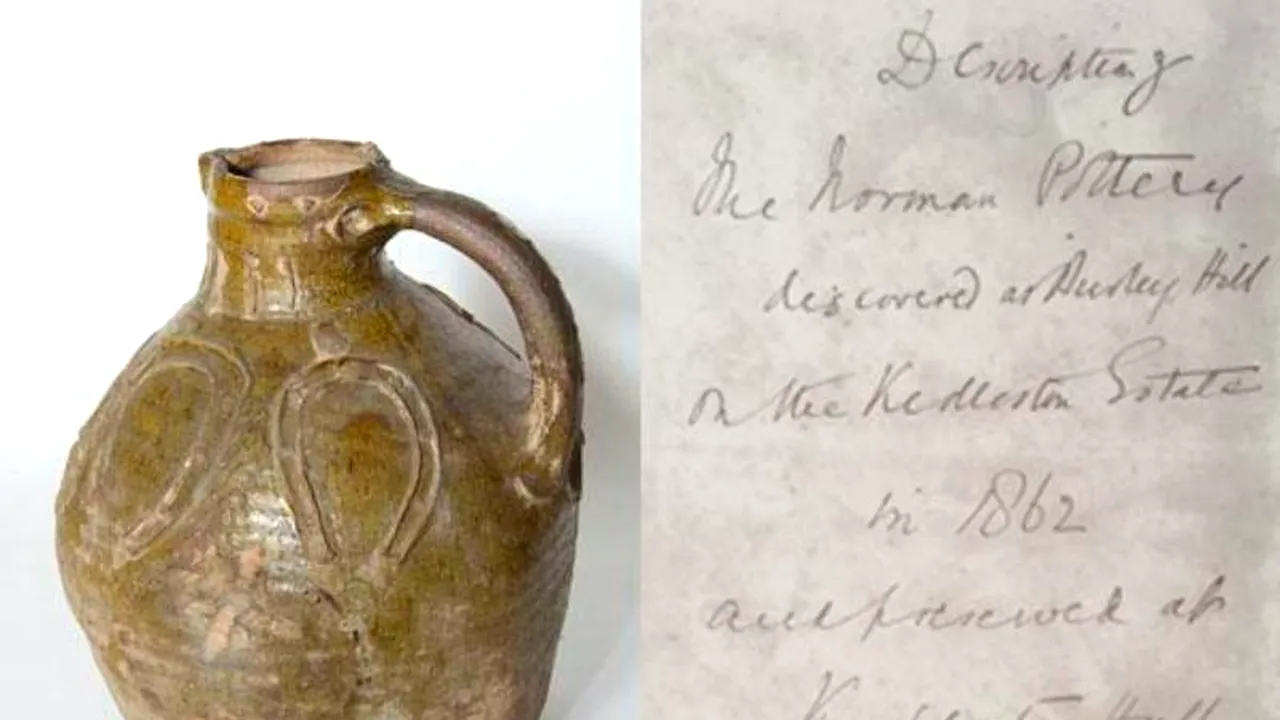 Descripting
The Norman Pottery
discovered at Burley Hill
on the Kedleston Estate
in 1862
and preserved at
Kedleston Hall